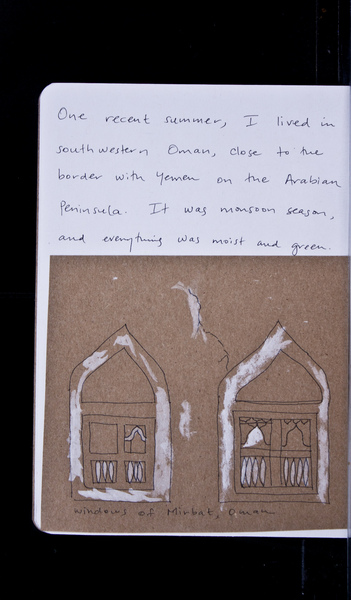 One recent summer, I lived in
southwestern Oman, close to the
border with Yemen on the Arabian
Peninsula. It was monsoon season,
and everything was moist and green.
windows of Mirbat, Oman